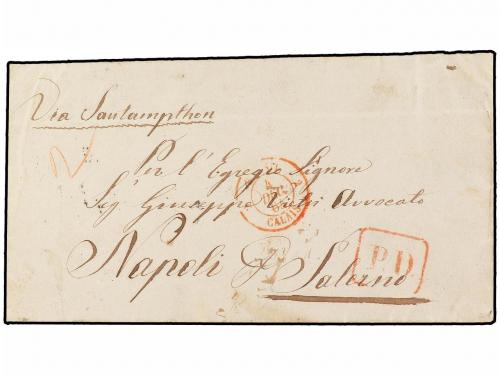 Via Sautampthon
2
Per l'Egregio Signore
Sig. Giuseppe Vietri Avvocato
Napoli P. Salerno
CALAIS
P.D.